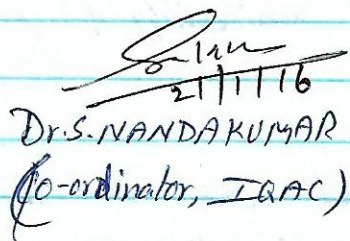 21/1/16
Dr.S.NANDAKUMAR
(Co-ordinator, IQAC)